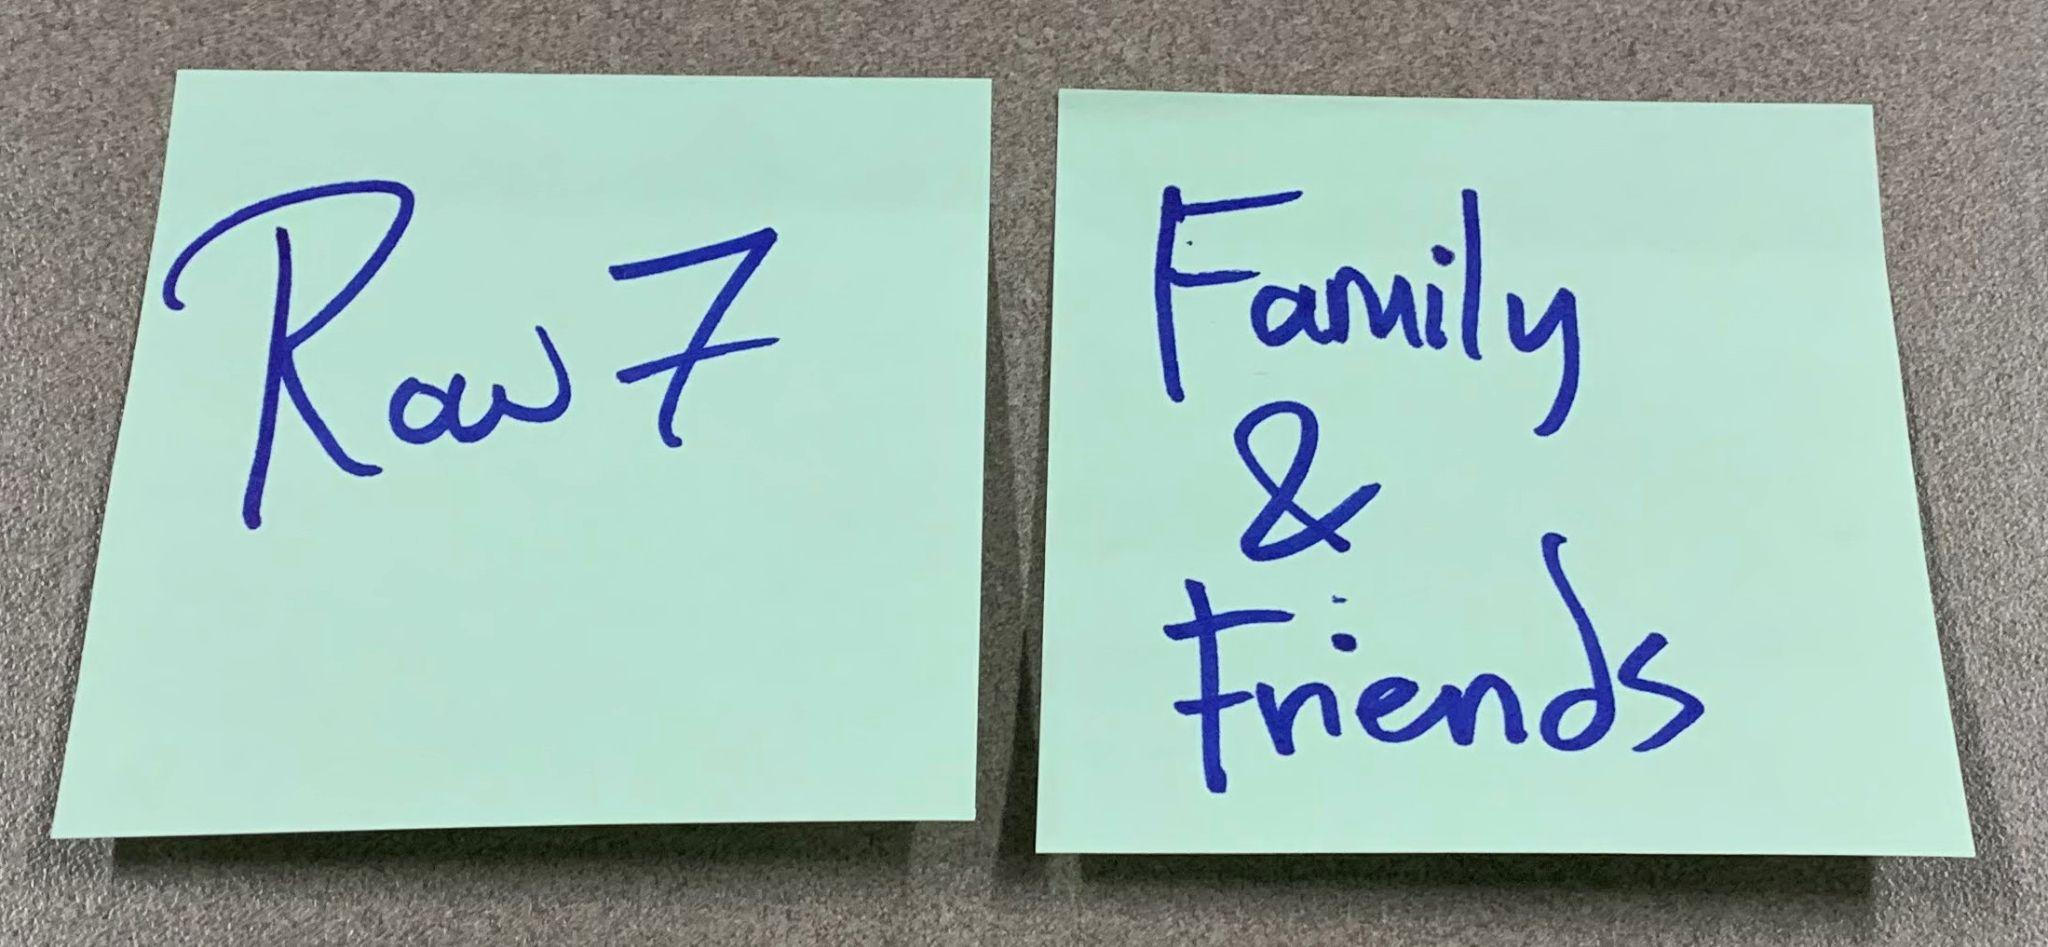 Row 7
Family
&
Friends